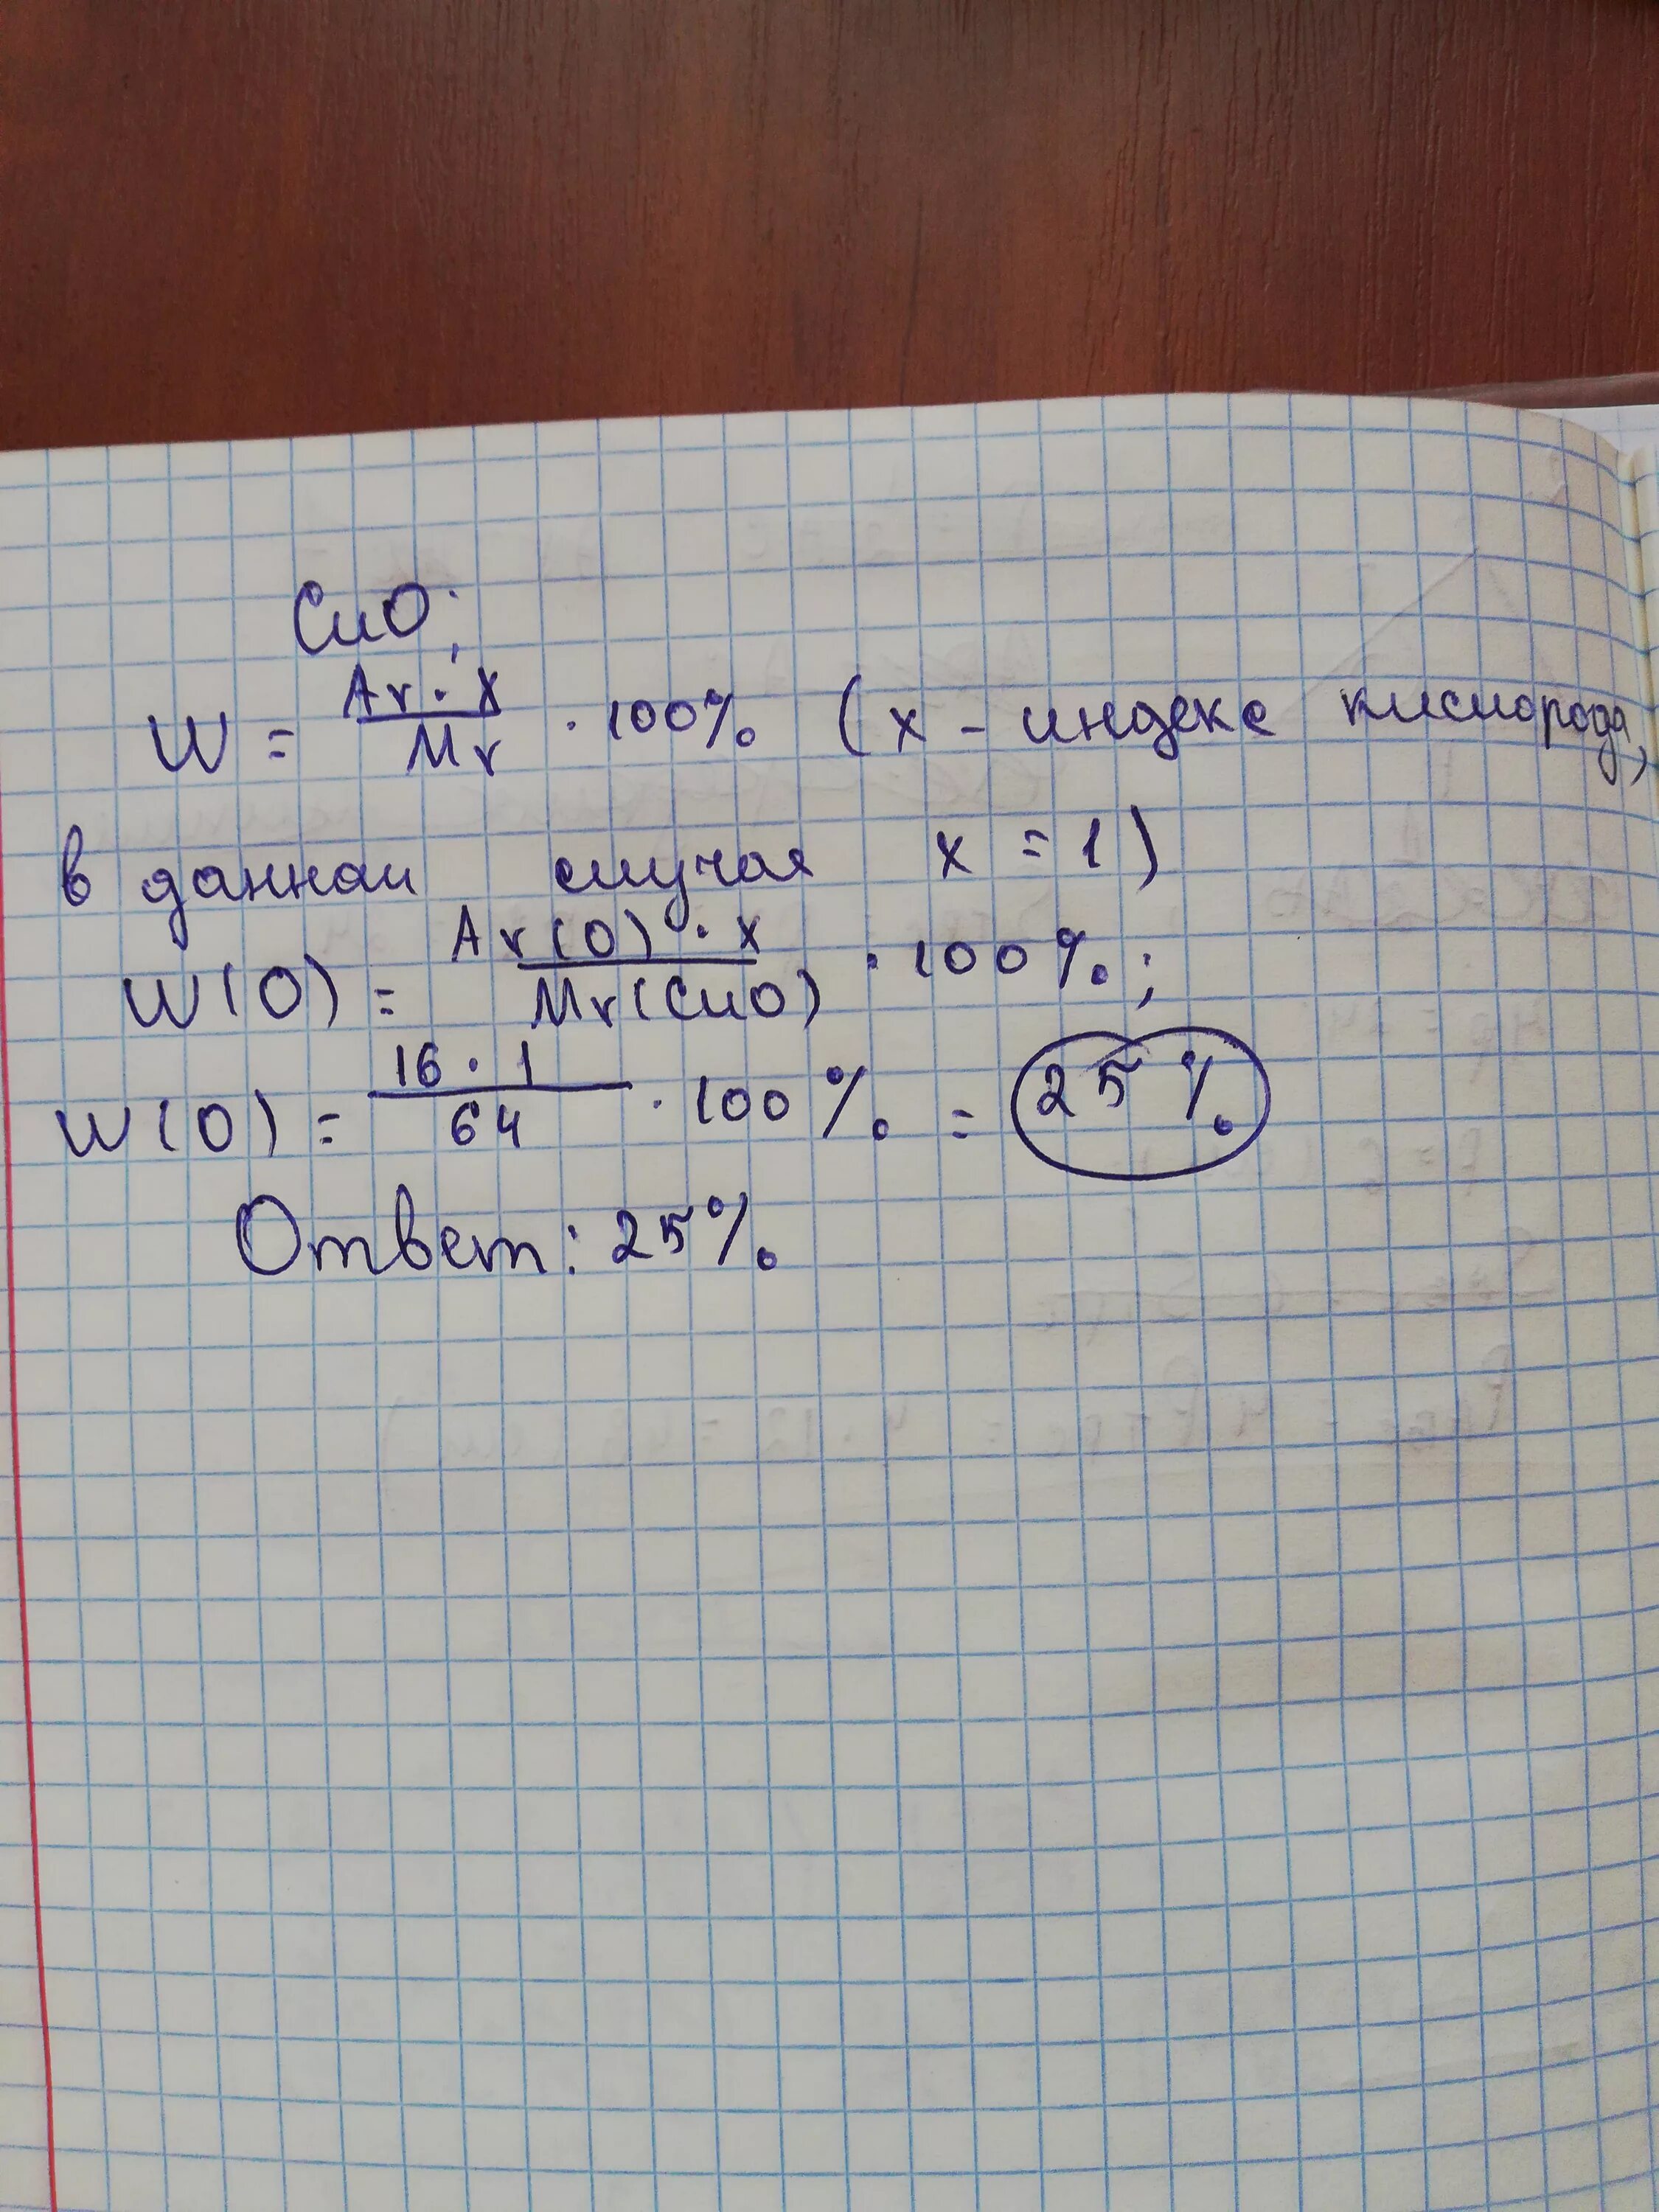 CuO;
W = Ar · x / Mr · 100% (x - индекс кислорода,
в данном случае x = 1)
W(O) = Ar(O) · x / Mr(CuO) · 100%;
W(O) = 16 · 1 / 64 · 100% = 25%
Ответ: 25%